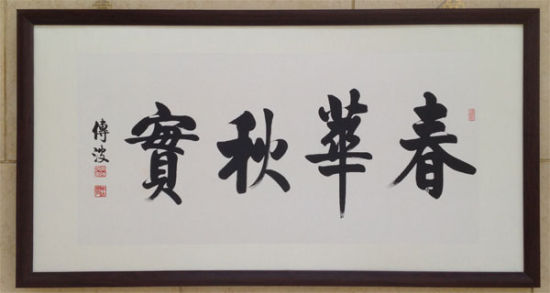 春華秋實
傳波